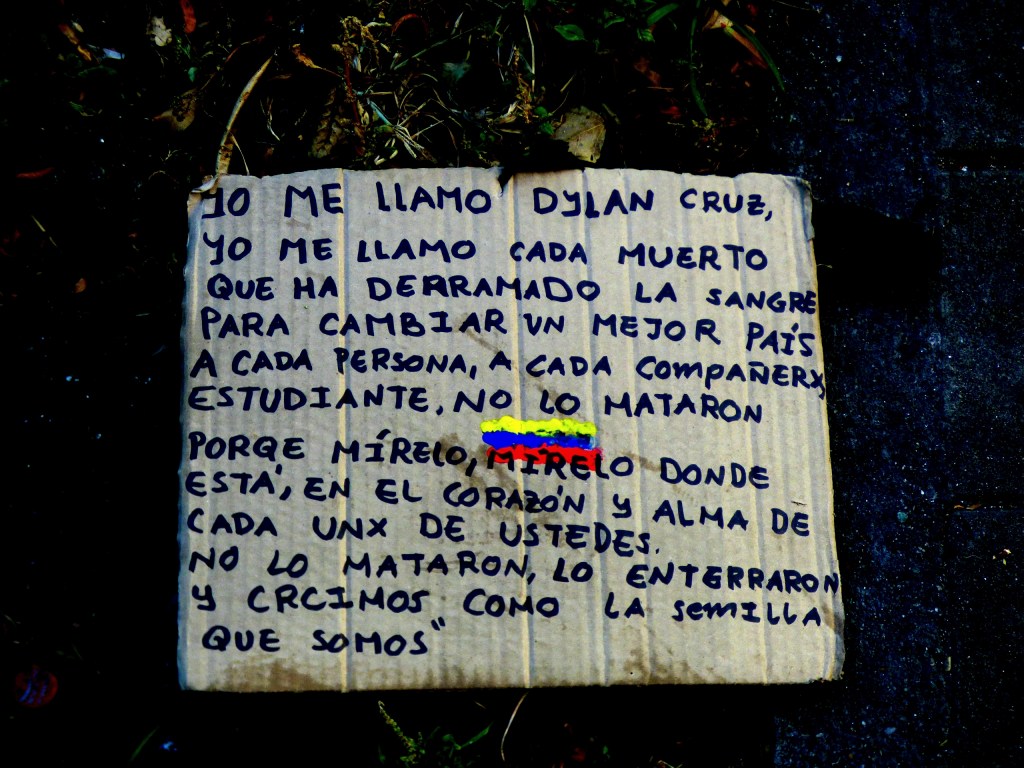 YO ME LLAMO DYLAN CRUZ,
YO ME LLAMO CADA MUERTO
QUE HA DERRAMADO LA SANGRE
PARA CAMBIAR UN MEJOR PAÍS
A CADA PERSONA, A CADA COMPAÑERX,
ESTUDIANTE, NO LO MATARON
PORQE MÍRELO, MÍRELO DONDE
ESTÁ, EN EL CORAZÓN Y ALMA DE
CADA UNX DE USTEDES.
NO LO MATARON, LO ENTERRARON
Y CRCIMOS COMO LA SEMILLA
QUE SOMOS"